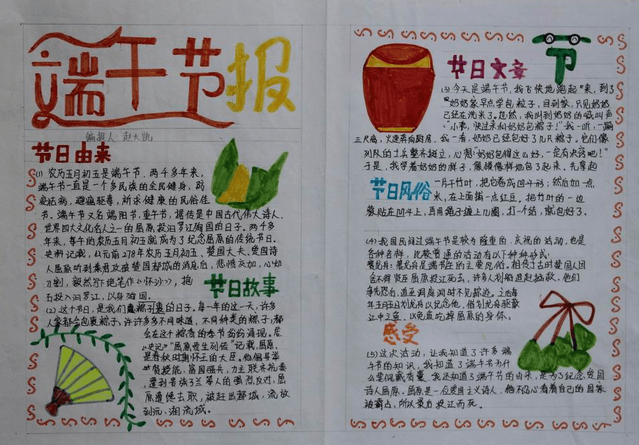 端午节报
编报人
节日由来
(1)农历五月初五是端午节,两千多年来,
端午节一直是一个多民族的全民健身,防
疫祛病,避瘟驱毒,祈求健康的民俗佳
节。端午节又名端阳节,重午节,据传是中国古代伟大诗人,
世界四大文化名人之一的屈原,投汨罗江殉国的日子。两千多
年来,每年的农历五月初五就成为了纪念屈原的传统节日。
史料记载,公元前278年农历五月初五,楚国大夫、爱国诗
人屈原听到秦军攻破楚国都城的消息后,悲愤交加,心如
刀割,毅然写下绝笔作《怀沙》,抱
石投入汨罗江,以身殉国。
节日故事
(2)这个节日,是我们最的日子。每一年的这一天,许多
人家都会包裹粽子,许许多多不同味道,不同种类的粽子,都
会在这个粽香的季节纷纷涌现。
史记》"屈原贾生列传"记载,屈原,
是春秋时期怀王的大臣。他倡导举
贤授能,富国强兵,力主联齐抗秦
遭到贵族子兰等人的强烈反对,屈
原遭馋去职,被赶出都城,流放
到沅、湘流域。
节
节日文章
(3)今天是端午节,我飞快地跑起来,到了
奶奶家早点学包粽子,目到家,只见奶奶
已经在洗米了。忽然,我听到奶奶的喊叫声
"小弟,快过来和奶奶包粽子!"我一听,一蹦
三尺高,火速奔向厨房。我一看,奶奶已经包好了几只粽子,他们像
列队的士兵整齐挺立,心想:奶奶包得这么好,一定有诀窍吧!"
于是,我学着奶奶的样子,像模像样地包了起来,先拿起
节日风俗
一片干竹叶,把它卷成凹斗形;然后加一点
米,在上面撒一点红豆,把竹叶的一边
像贴在凹斗上,再用绳子缠上几圈,打一个结,就包好了。
(4)我国民间过端午节是较为隆重的,庆祝的活动,也是
各种各样,比较普遍的活动有以下种种形式:
赛龙舟:赛龙舟是端午节的主要风俗。相传起源于古时楚国人因
舍不得贤臣屈原投江死去,许多人划船追赶拯救。他们
争先恐后,追至洞庭湖时不见踪迹。之后每
年五月五日划龙舟以纪念他。借划龙舟驱散
江中之鱼,以免鱼吃掉屈原的身体。
感受
(5)这次活动,让我知道了许多端
午节的知识,我知道了端午节为什
么要佩戴香囊。我还知道了端午节的由来,是为了纪念爱国
诗人屈原,屈原是一位爱国主义诗人,他不忍心看着自己的国家
被霸占,所以要自投江而死。